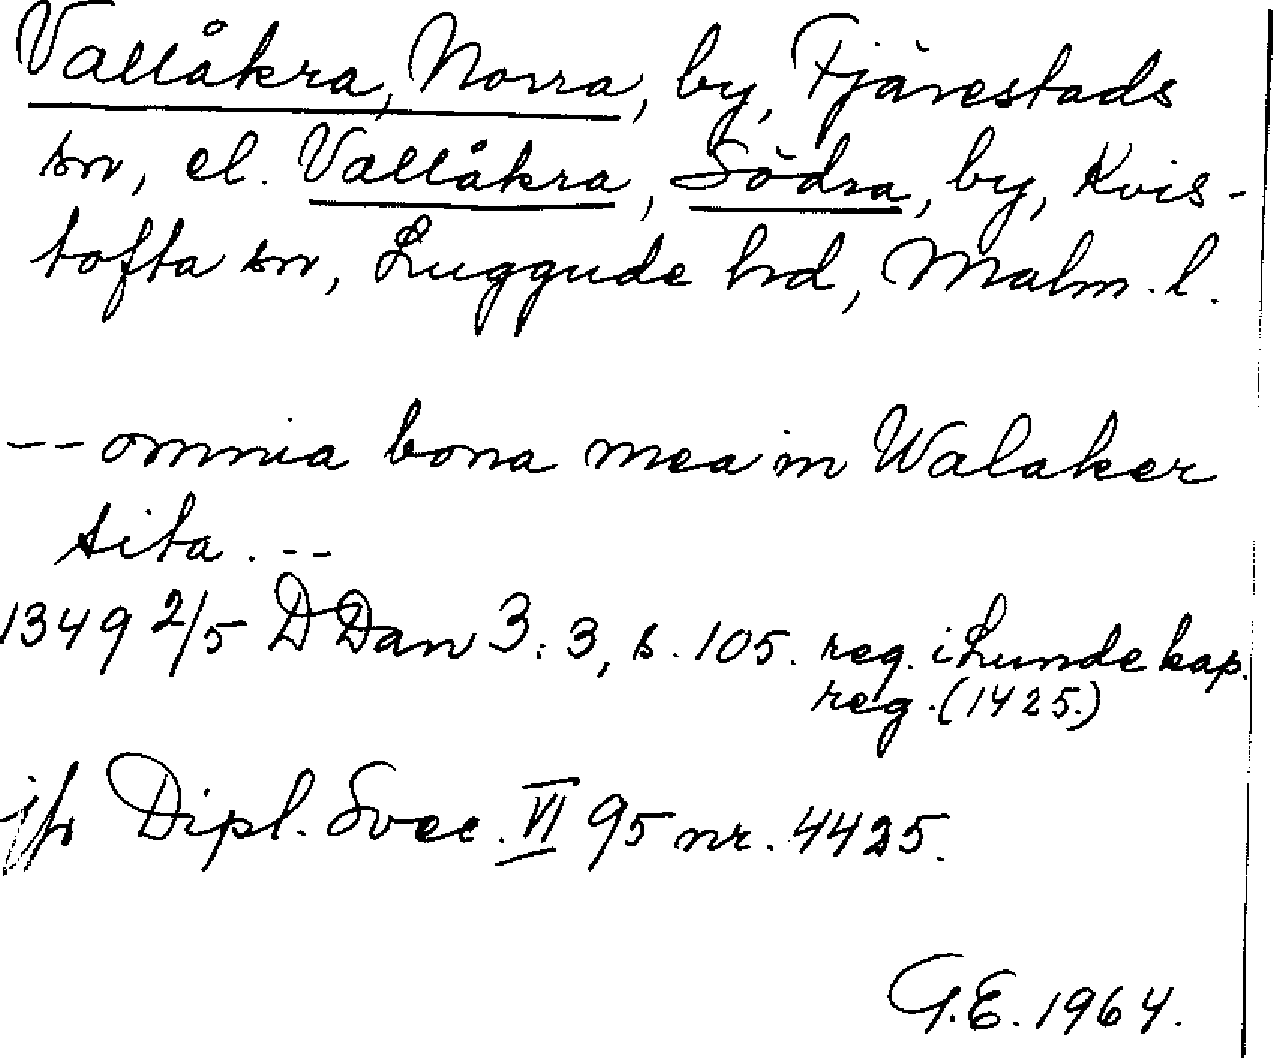 Vallåkra, Norra, by, Fjärestads
sn, el. Vallåkra, Södra, by, Kvis-
tofta sn, Luggude hd, Malm. l.
-- omnia bona mea in Walaker
sita. --
1349 2/5 DDan 3:3, s. 105. reg. i Lunde kap.
reg. (1425.)
jfr Dipl. Svec. VI 95 nr. 4425.
G.E. 1964.